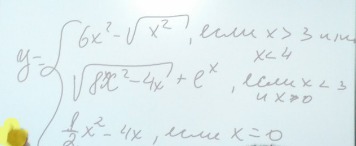 y= { 6x² - √x², если x > 3 или
x < 4
√(8x² - 4x) + eˣ, если x < 3
и x ≠ 0
1/2 x² - 4x, если x = 0